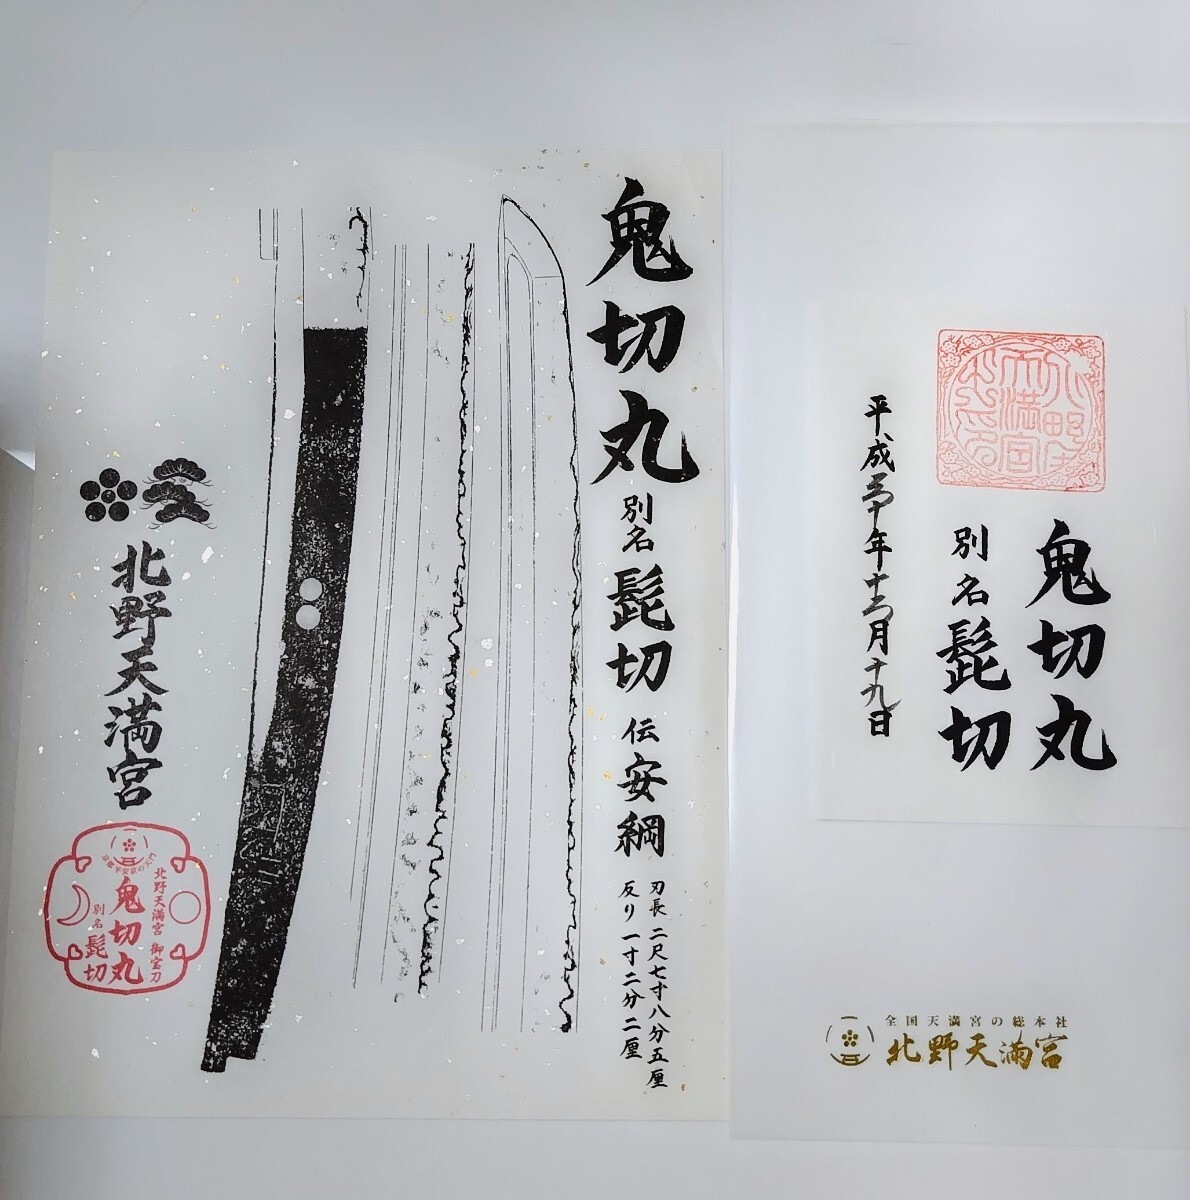 鬼切丸 別名 髭切 伝 安綱
刃長 二尺七寸八分五厘
反り 一寸二分二厘
北野天満宮
北野天満宮 御宝刀
鬼切丸
別名 髭切
鬼切丸
別名 髭切
平成三十年十二月十九日
全国天満宮の総本社
北野天満宮